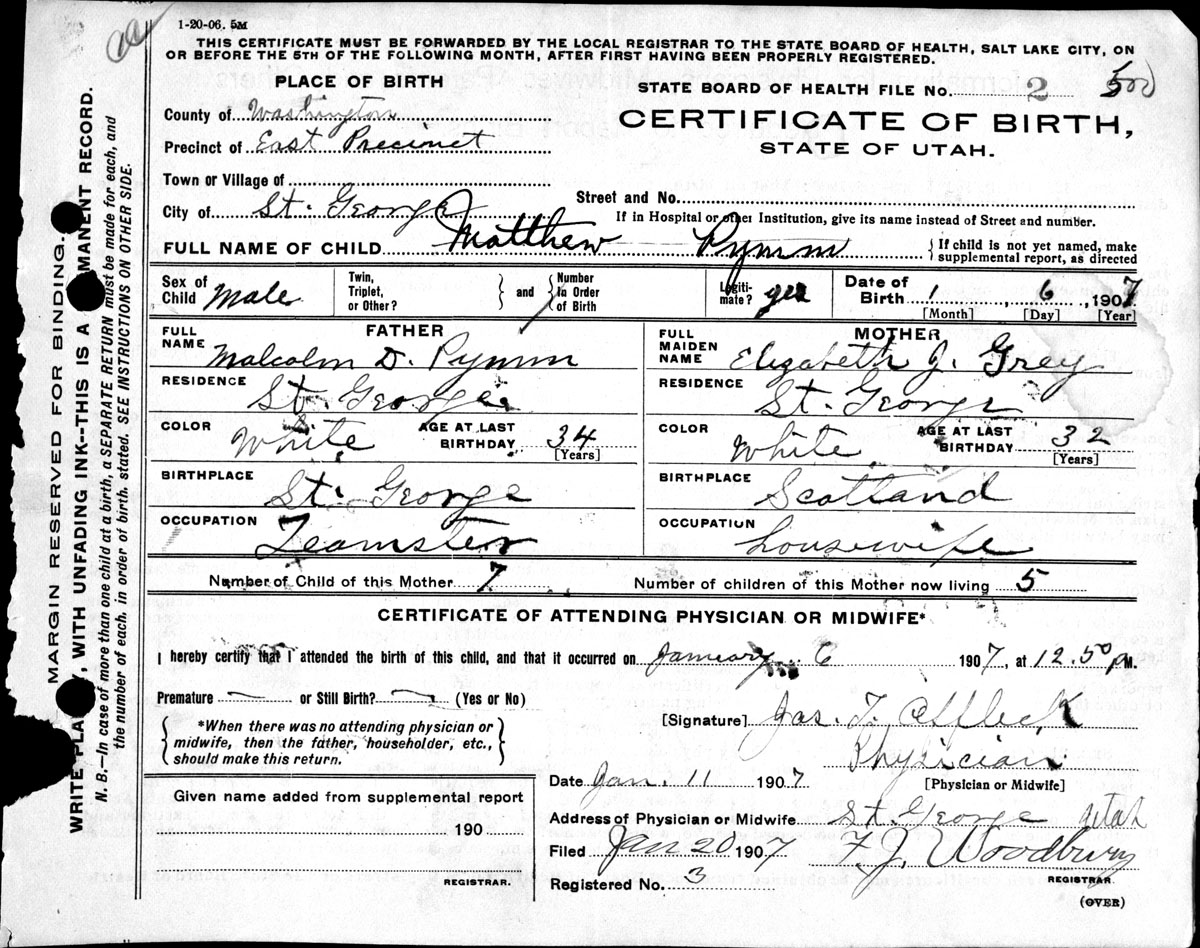 1-20-06. 5M
THIS CERTIFICATE MUST BE FORWARDED BY THE LOCAL REGISTRAR TO THE STATE BOARD OF HEALTH, SALT LAKE CITY, ON
OR BEFORE THE 5TH OF THE FOLLOWING MONTH, AFTER FIRST HAVING BEEN PROPERLY REGISTERED.
PLACE OF BIRTH
STATE BOARD OF HEALTH FILE No. 2 500
County of Washington
CERTIFICATE OF BIRTH,
Precinct of East Precinct
STATE OF UTAH.
Town or Village of
Street and No.
City of St. George
If in Hospital or other Institution, give its name instead of Street and number.
FULL NAME OF CHILD Matthew Pymm { If child is not yet named, make supplemental report, as directed
Sex of Child Male
Twin, Triplet, or Other? } and { Number in Order of Birth
Legiti-mate? yes
Date of Birth 1, 6, 1907
[Month] [Day] [Year]
FATHER
FULL NAME Malcolm D. Pymm
RESIDENCE St. George
COLOR White AGE AT LAST BIRTHDAY 34 [Years]
BIRTHPLACE St. George
OCCUPATION Teamster
MOTHER
FULL MAIDEN NAME Elizabeth J. Grey
RESIDENCE St. George
COLOR White AGE AT LAST BIRTHDAY 32 [Years]
BIRTHPLACE Scotland
OCCUPATION housewife
Number of Child of this Mother 7 Number of children of this Mother now living 5
CERTIFICATE OF ATTENDING PHYSICIAN OR MIDWIFE*
I hereby certify that I attended the birth of this child, and that it occurred on January 6 1907, at 12.50 P.M.
Premature — or Still Birth? — (Yes or No)
{ *When there was no attending physician or
midwife, then the father, householder, etc.,
should make this return. }
[Signature] Jas. T. Affleck
Physician
[Physician or Midwife]
Date Jan. 11 1907
Address of Physician or Midwife St. George Utah
Filed Jan 20 1907 F. J. Woodbury
REGISTRAR.
Registered No. 3
(OVER)
Given name added from supplemental report
190
REGISTRAR.
MARGIN RESERVED FOR BINDING.
WRITE PLA Y, WITH UNFADING INK--THIS IS A MANENT RECORD.
N. B.—In case of more than one child at a birth, a SEPARATE RETURN must be made for each, and
the number of each, in order of birth, stated. SEE INSTRUCTIONS ON OTHER SIDE.